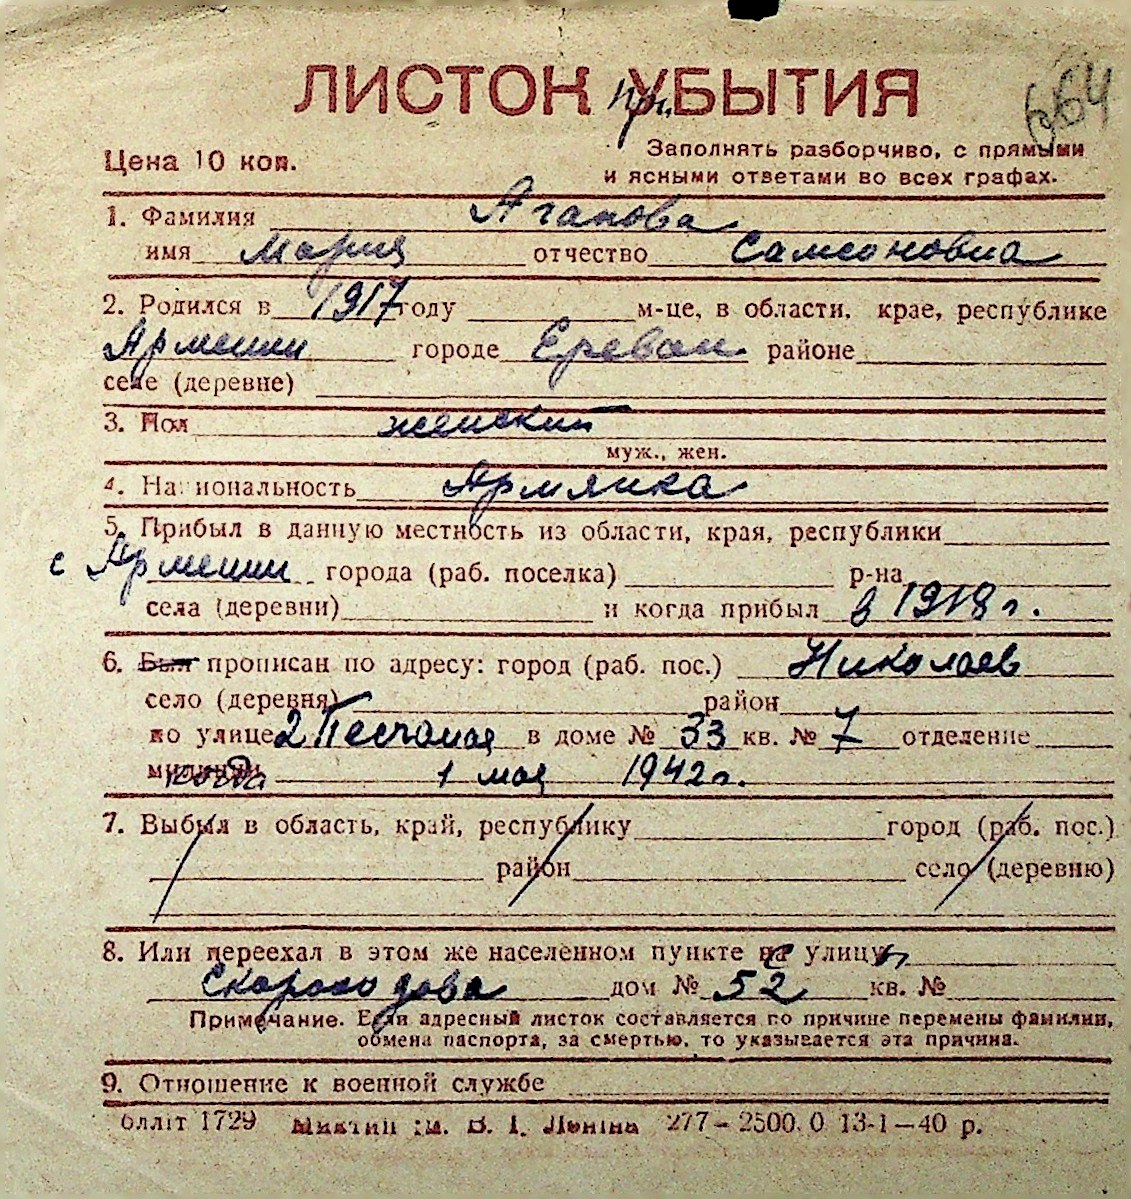 ЛИСТОК пр. УБЫТИЯ
664
Цена 10 коп.
Заполнять разборчиво, с прямыми
и ясными ответами во всех графах.
1. Фамилия Агапова
имя Мария отчество Самсоновна
2. Родился в 1917 году м-це, в области, крае, республике
Армении городе Ереван районе
селе (деревне)
3. Пол женский
муж., жен.
4. Национальность Армянка
5. Прибыл в данную местность из области, края, республики
с Армении города (раб. поселка) р-на
села (деревни) и когда прибыл в 1918 г.
6. Был прописан по адресу: город (раб. пос.) Николаев
село (деревня) район
по улице 2 Песчаная в доме № 33 кв. № 7 отделение
милиции когда 1 мая 1942 г.
7. Выбыл в область, край, республику город (раб. пос.)
район село (деревню)
8. Или переехал в этом же населенном пункте на с улицу ы
Скороходова дом № 52 кв. №
Примечание. Если адресный листок составляется по причине перемены фамилии,
обмена паспорта, за смертью, то указывается эта причина.
9. Отношение к военной службе
блліт 1729 ім. В. І. Леніна 277–2500.0 13-1–40 р.